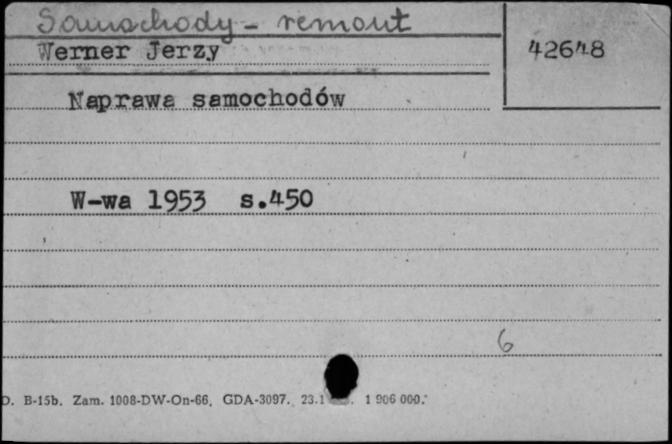 Samochody - remont
Werner Jerzy
42648
Naprawa samochodów
W-wa 1953 s.450
6
D. B-15b. Zam. 1008-DW-On-66, GDA-3097. 23.1 1 906 000.